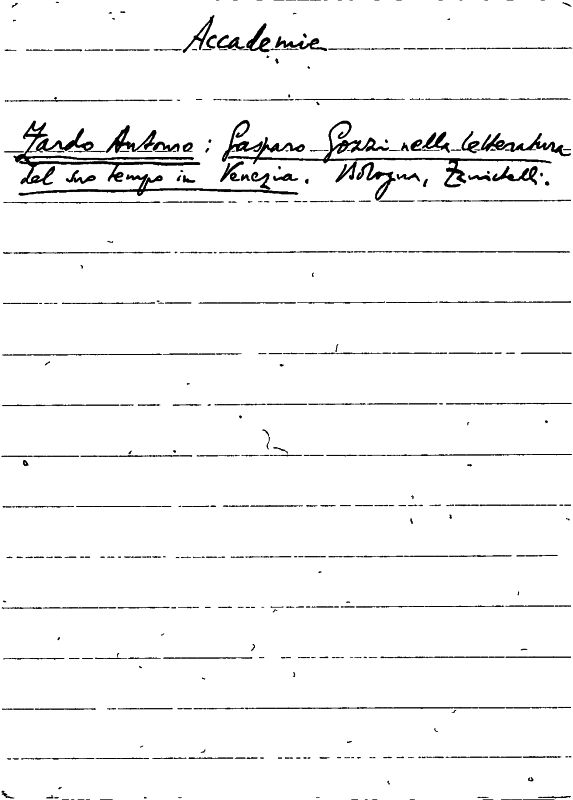 Accademie
Zardo Antonio : Gasparo Gozzi nella letteratura
del suo tempo in Venezia. Bologna, Zanichelli.